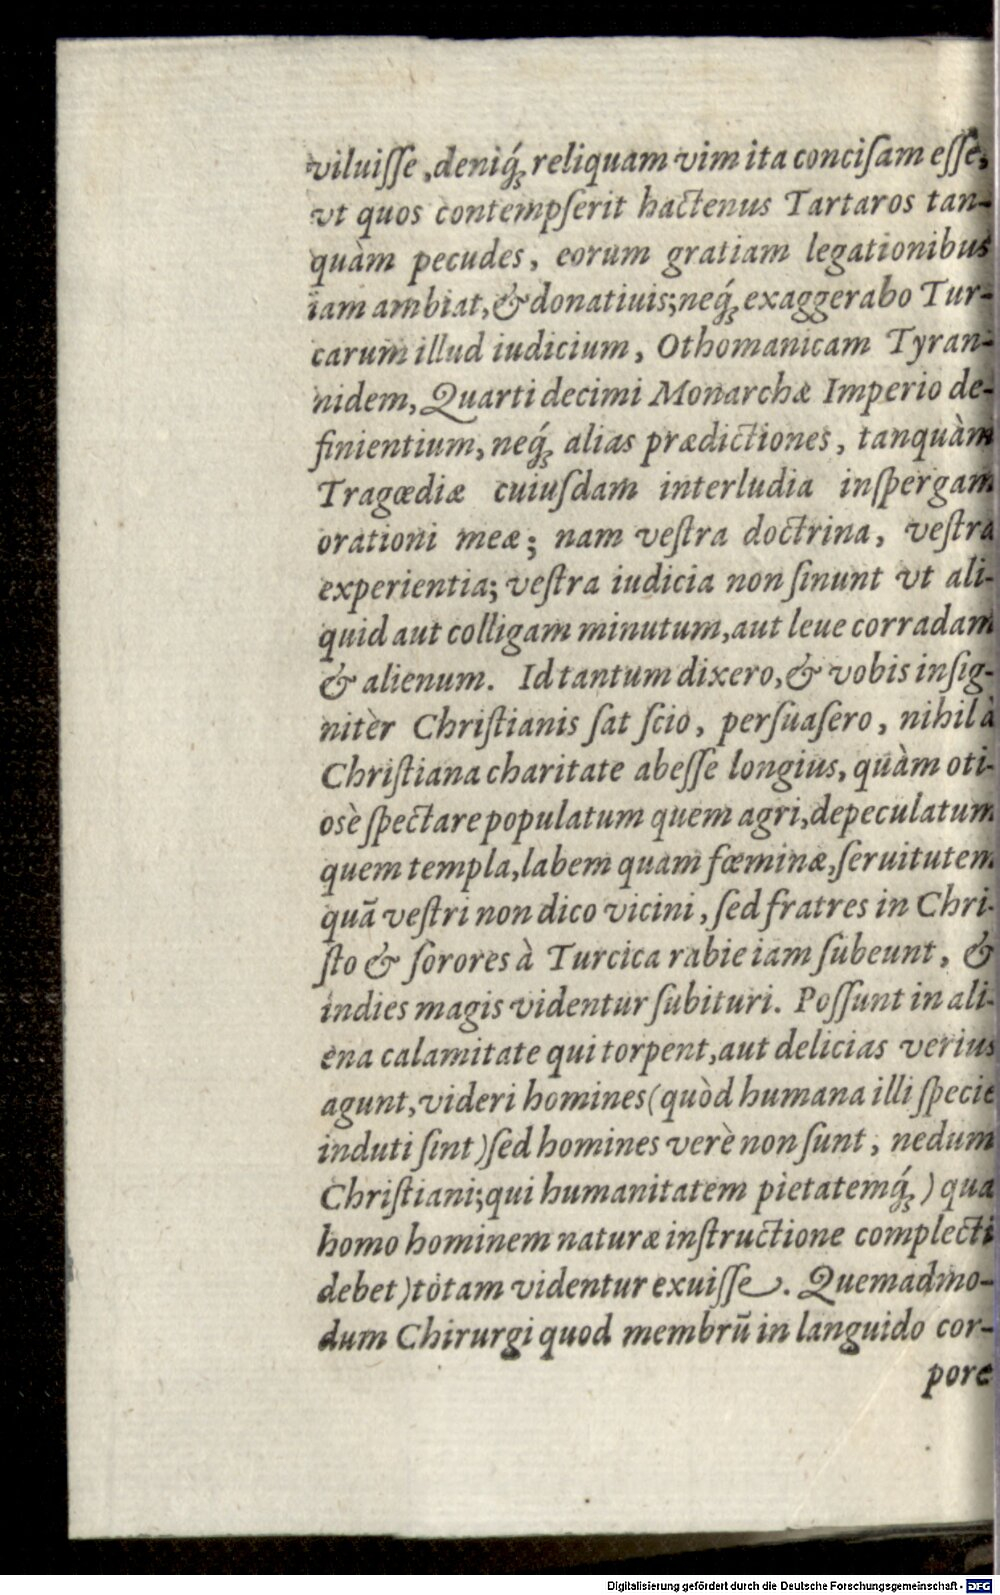 viluiſſe, deniq́ꝫ reliquam vim ita conciſam eſſe,
vt quos contempſerit hactenus Tartaros tan-
quàm pecudes, eorum gratiam legationibus
iam ambiat, & donatiuis; neq́ꝫ exaggerabo Tur-
carum illud iudicium, Othomanicam Tyran-
nidem, Quarti decimi Monarchæ Imperio de-
finientium, neq́ꝫ alias prædictiones, tanquàm
Tragœdiæ cuiuſdam interludia inſpergam
orationi meæ; nam veſtra doctrina, veſtra
experientia; veſtra iudicia non ſinunt vt ali-
quid aut colligam minutum, aut leue corradam
& alienum. Id tantum dixero, & vobis inſig-
nitèr Chriſtianis ſat ſcio, perſuaſero, nihil à
Chriſtiana charitate abeſſe longius, quàm oti-
osè ſpectare populatum quem agri, depeculatum
quem templa, labem quam fœminæ, ſeruitutem
quā veſtri non dico vicini, ſed fratres in Chri-
ſto & ſorores à Turcica rabie iam ſubeunt, &
indies magis videntur ſubituri. Poſſunt in ali-
ena calamitate qui torpent, aut delicias verius
agunt, videri homines (quòd humana illi ſpecie
induti ſint) ſed homines verè non ſunt, nedum
Chriſtiani; qui humanitatem pietatemq́ꝫ ) qua
homo hominem naturæ inſtructione complecti
debet) totam videntur exuiſſe. Quemadmo-
dum Chirurgi quod membrū in languido cor-
pore
Digitalisierung gefördert durch die Deutsche Forschungsgemeinschaft - DFG